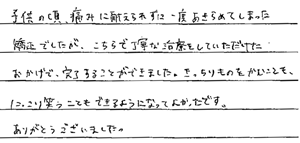 子供の頃、痛みに耐えられずに一度あきらめてしまった
矯正でしたが、こちらで丁寧な治療をしていただけた
おかげで、完了することができました。きっちりものをかむことも、
にっこり笑うこともできるようになってよかったです。
ありがとうございました。